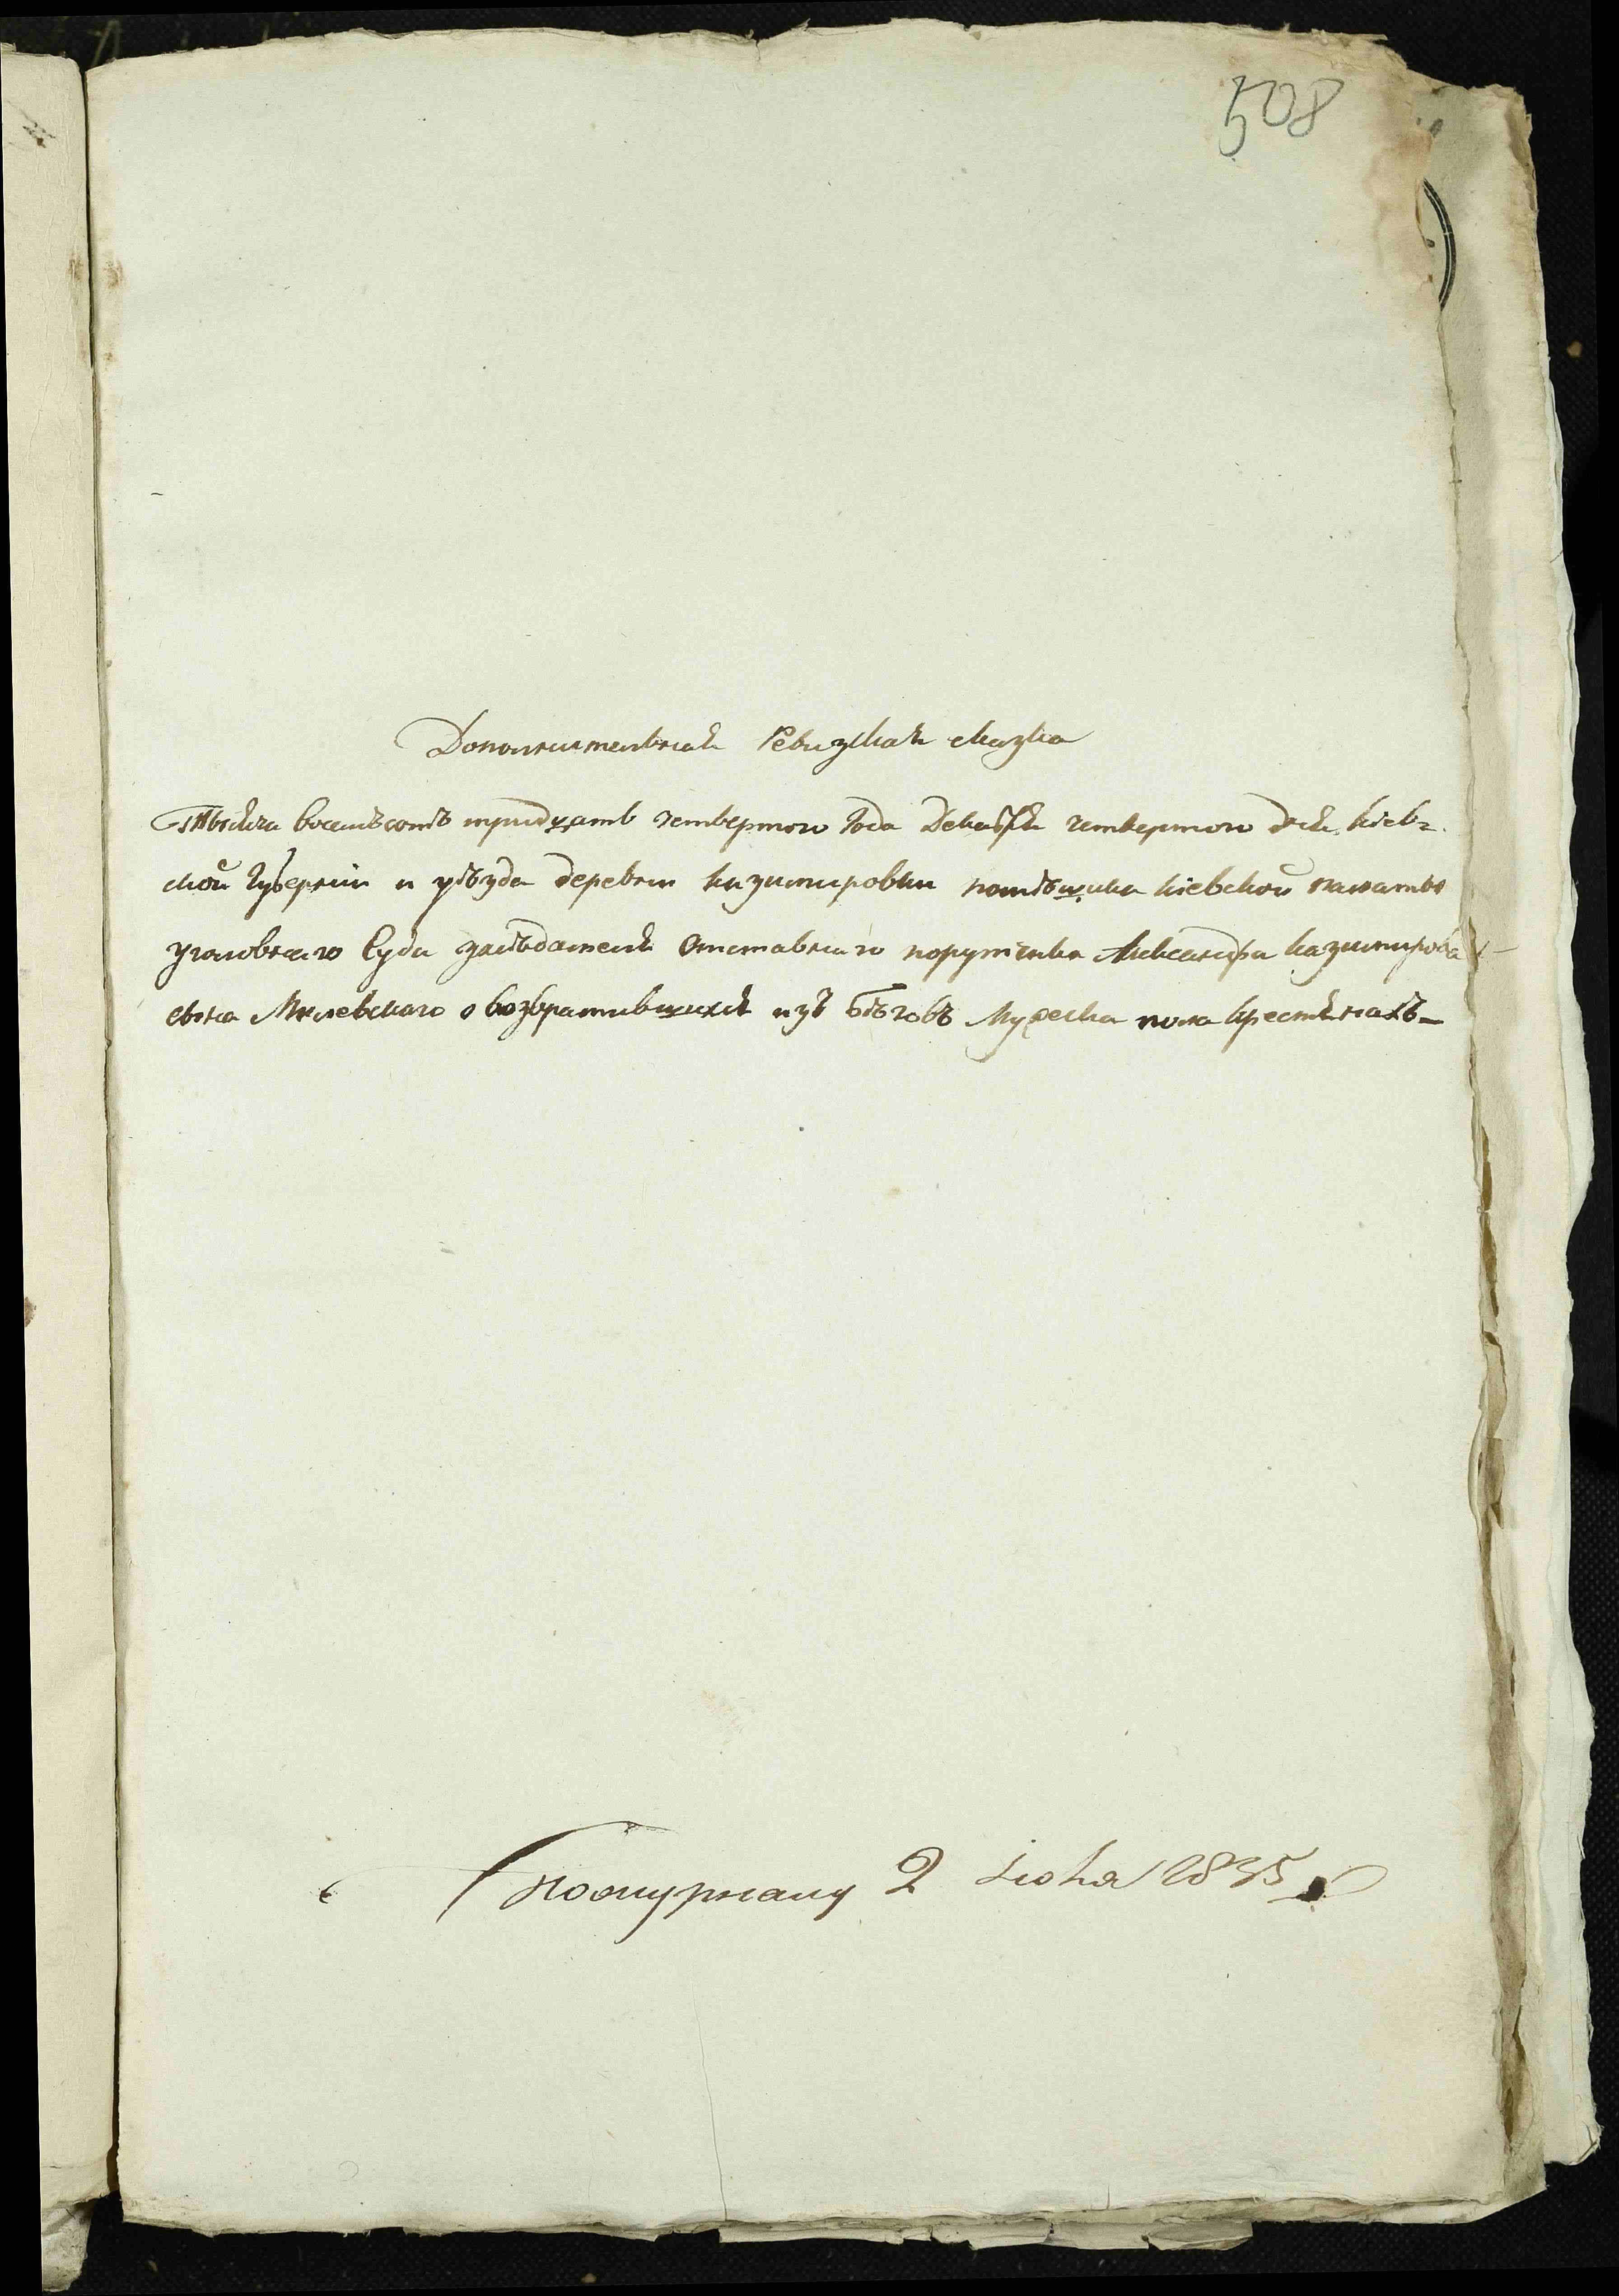 508
Дополнительная Ревизкая сказка
Тысяча восемьсотъ тридцать четвертого Года Декабря четвертого дня Кіев=
ской Губерніи и уѣзда деревни Казимировки помѣщика Кіевской палаты
уголовнаго Суда засѣдателя Отставнаго порутчика Александра Казимирова
сына Милевского о возвратившихся изъ бѣговъ Мужеска пола крестянахъ—
По журналу 2 1835